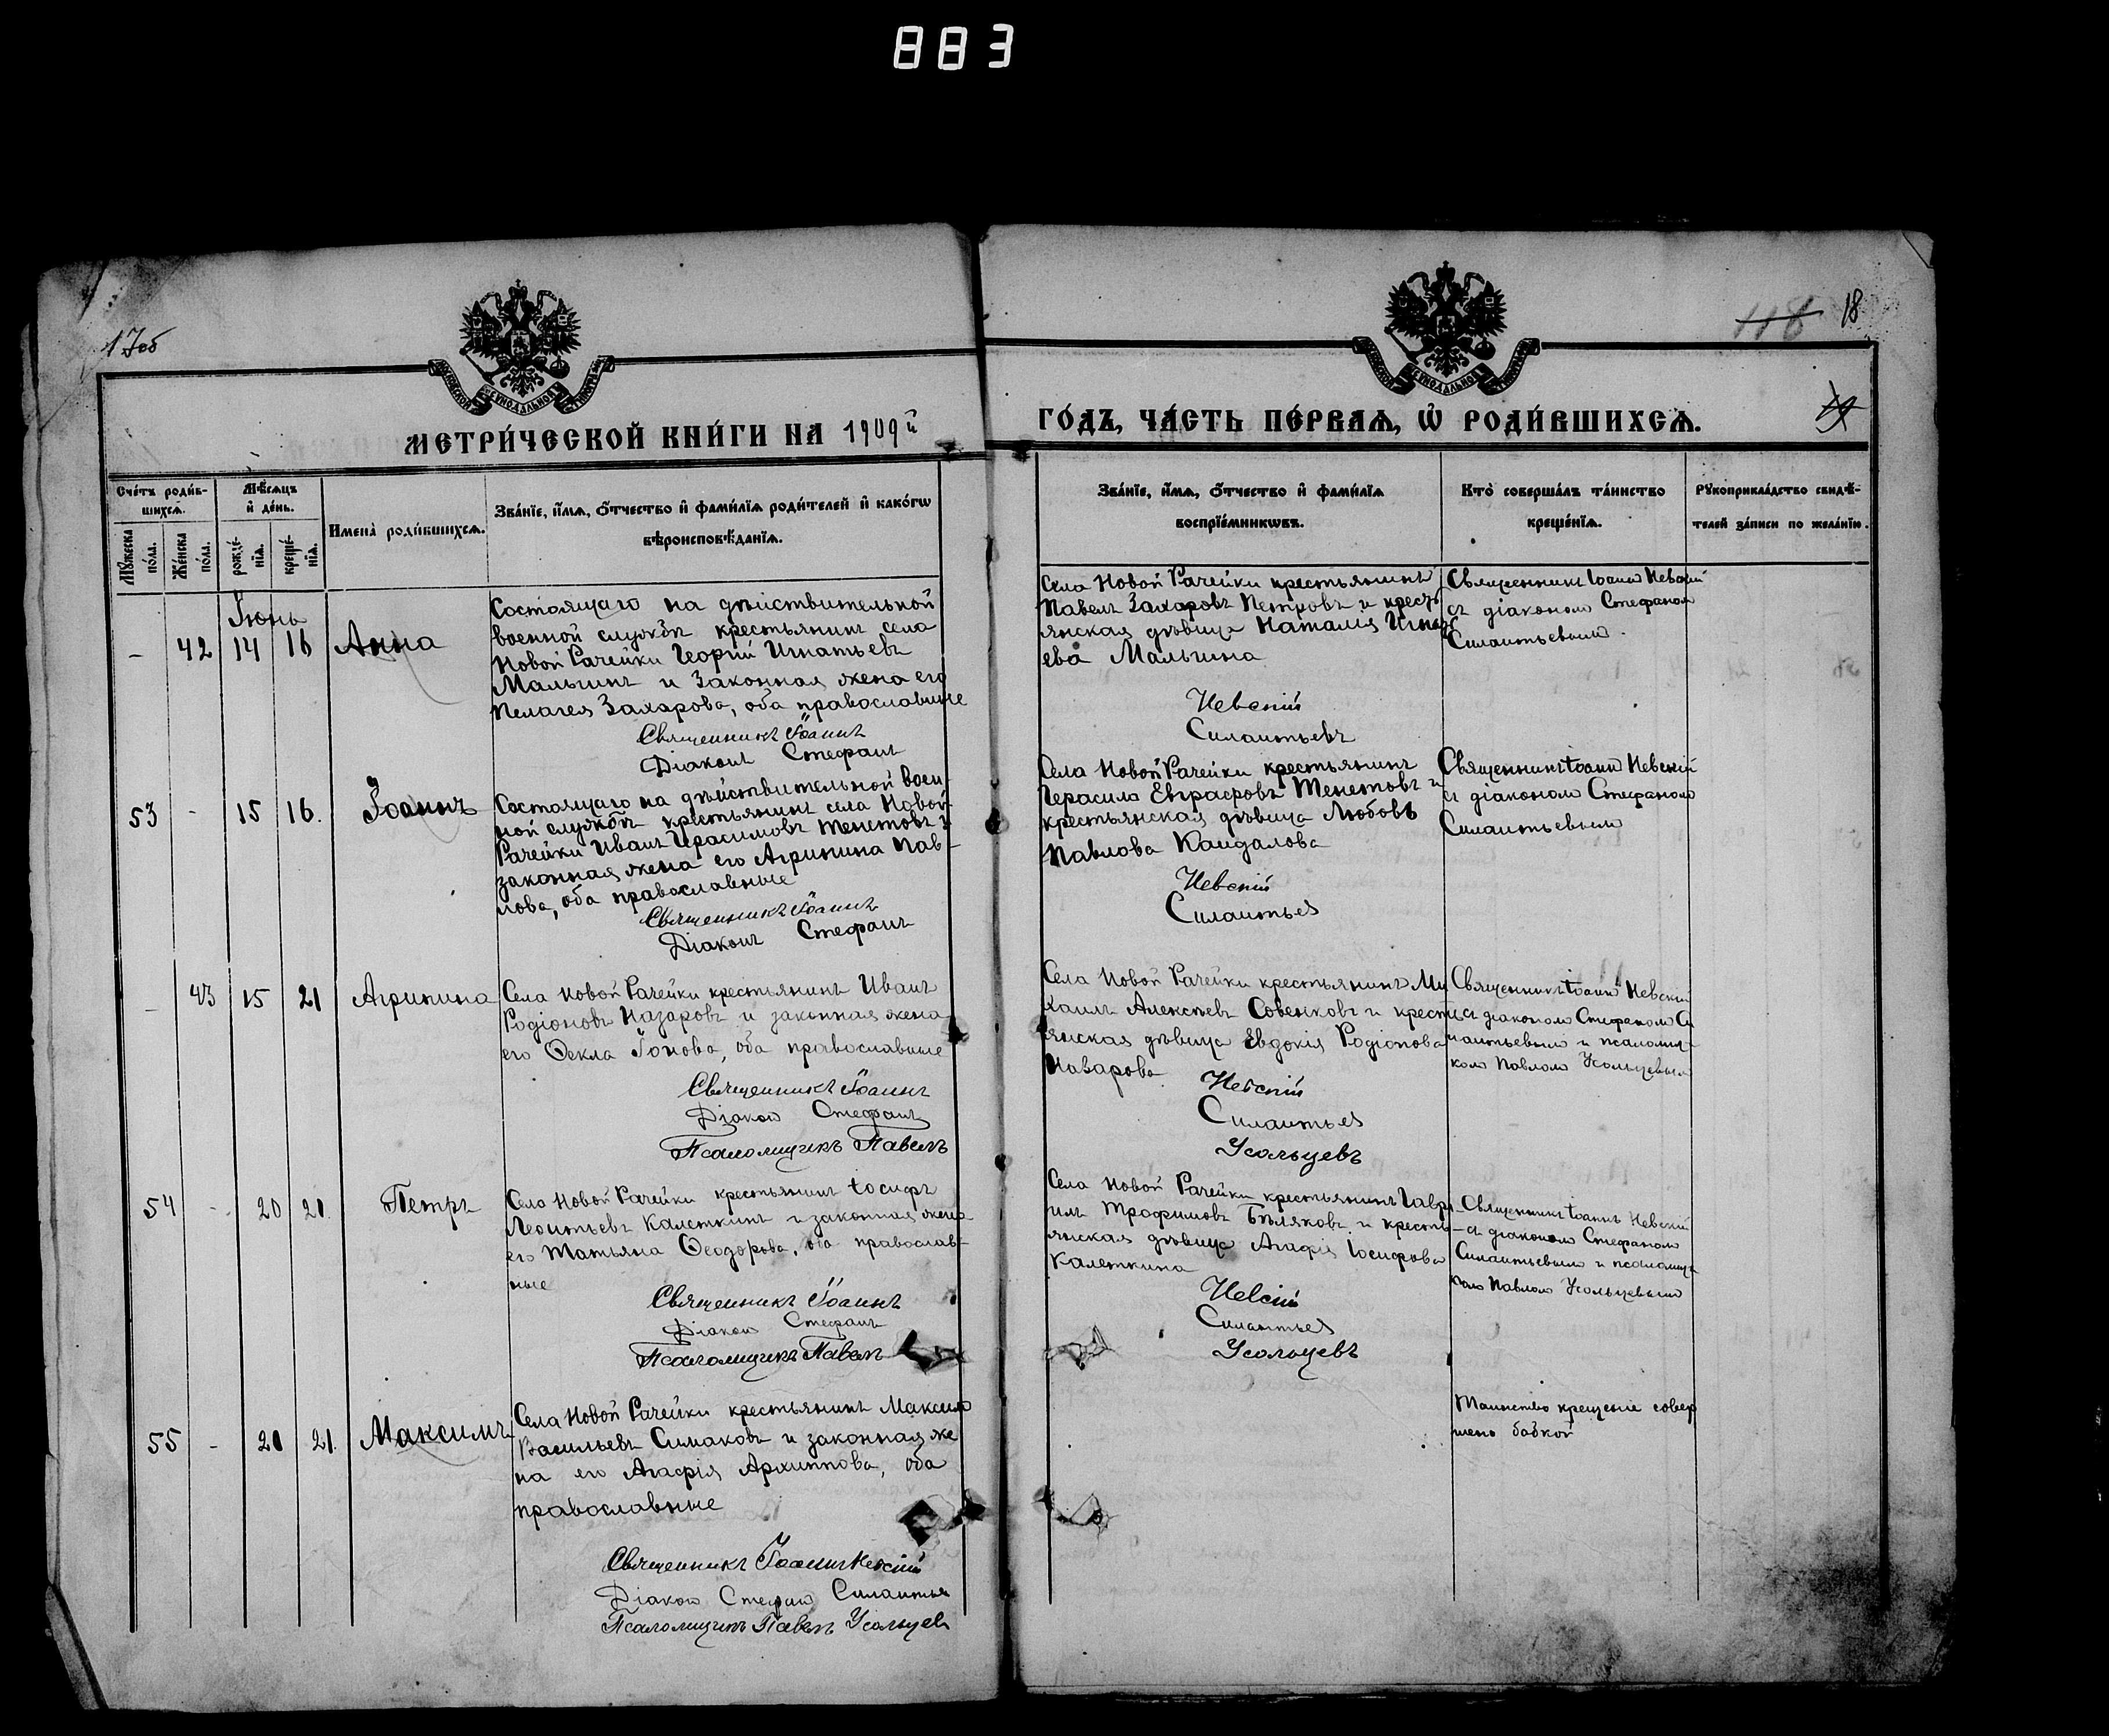 883
17об
118 18
МЕТРИ́ЧЕСКОЙ КНИ́ГИ НА 1909й
ГО́ДЪ, ЧА́СТЬ ПЕ́РВАѦ, Ѿ РОДИ́ВШИХСѦ.
Сче́тъ роди́в-
шихсѧ.
Мꙋ́жеска по́ла.
Же́нска по́ла.
Мѣ́сѧцъ
и҆ де́нь.
рожде́-
нїѧ.
креще́-
нїѧ.
И҆мена̀ роди́вшихсѧ.
Зва́нїе, и҆́мѧ, ѻ҆́тчество и҆ фами́лїѧ роди́телей и҆ како́гѡ
вѣроисповѣ́данїѧ.
Зва́нїе, и҆́мѧ, ѻ҆́тчество и҆ фами́лїѧ
воспрїе́мникѡвъ.
Кто̀ соверша́лъ та́инство
креще́нїѧ.
Рꙋкоприкла́дство свидѣ́-
телей за́писи по жела́нїю.
Іюнь
– 42 14 16 Анна
Состоящаго на дѣйствительной
военной службѣ крестьянинъ села
Новой Рачейки Георгій Игнатьевъ
Малыгинъ и законная жена его
Пелагея Захарова, оба православные
Священникъ Іоаннъ
Діаконъ Стефанъ
Села Новой Рачейки крестьянинъ
Павелъ Захаровъ Петровъ и кресть
янская дѣвица Наталія Игнать
ева Малыгина
Невскій
Силантьевъ
Священникъ Іоаннъ Невскій
съ діакономъ Стефаномъ
Силантьевымъ.
53 - 15 16. Іоаннъ
Состоящаго на дѣйствительной воен-
ной службѣ крестьянинъ села Новой
Рачейки Иванъ Герасимовъ Тенетовъ и
законная жена его Агрипина Пав-
лова, оба православные
Священникъ Іоаннъ
Діаконъ Стефанъ
Села Новой Рачейки крестьянинъ
Герасимъ Евграфовъ Тенетовъ и
крестьянская дѣвица Любовь
Павлова Кандалова
Невскій
Силантьев
Священникъ Іоаннъ Невскій
съ діакономъ Стефаномъ
Силантьевымъ
– 43 15 21 Агрипина
Села Новой Рачейки крестьянинъ Иванъ
Родіоновъ Назаровъ и законная жена
его Ѳекла Іонова, оба православные
Священникъ Іоаннъ
Діаконъ Стефанъ
Псаломщикъ Павелъ
Села Новой Рачейки крестьянинъ Ми
хаилъ Алексѣевъ Совенковъ и кресть
янская дѣвица Евдокія Родіонова
Назарова
Невскій
Силантьев
Усольцевъ
Священникъ Іоаннъ Невскій
съ діакономъ Стефаномъ Си
лантьевымъ и псаломщи
комъ Павломъ Усольцевымъ
54 - 20 21. Петръ
Села Новой Рачейки крестьянинъ Іосифъ
Леонтьевъ Калеткинъ и законная жена
его Татьяна Ѳеодорова, оба православ-
ные
Священникъ Іоаннъ
Діаконъ Стефанъ
Псаломщикъ Павелъ
Села Новой Рачейки крестьянинъ Гаврі
илъ Трофимовъ Бѣляковъ и кресть-
янская дѣвица Агафія Іосифова
Калеткина
Невскій
Силантьев
Усольцевъ
Священникъ Іоаннъ Невскій
съ діакономъ Стефаномъ
Силантьевымъ и псаломщи
комъ Павломъ Усольцевымъ
55 - 20 21. Максимъ
Села Новой Рачейки крестьянинъ Максимъ
Васильевъ Симаковъ и законная же
на его Агафія Архиппова, оба
православные
Священникъ Іоаннъ Невскій
Діаконъ Стефанъ Силантьев
Псаломщикъ Павелъ Усольцев
Таинство крещеніе совер
шено бабкой